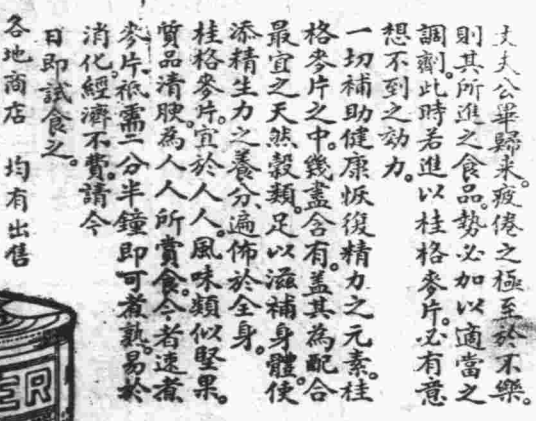 丈夫公畢歸来。疲倦之極至於不樂。
則其所進之食品。勢必加以適當之
調劑。此時若進以桂格麥片。必有意
想不到之効力。
一切補助健康恢復精力之元素。桂
格麥片之中。幾盡含有。蓋其為配合
最宜之天然穀類。足以滋補身體。使
添精生力之養分、遍佈於全身。
桂格麥片。宜於人人。風味類似堅果。
質品清腴。為人人所賞食。今者速煮
麥片。祇需二分半鐘即可煮熟。易於
消化。經濟不費。請今
日即試食之。
各地商店 均有出售
ER